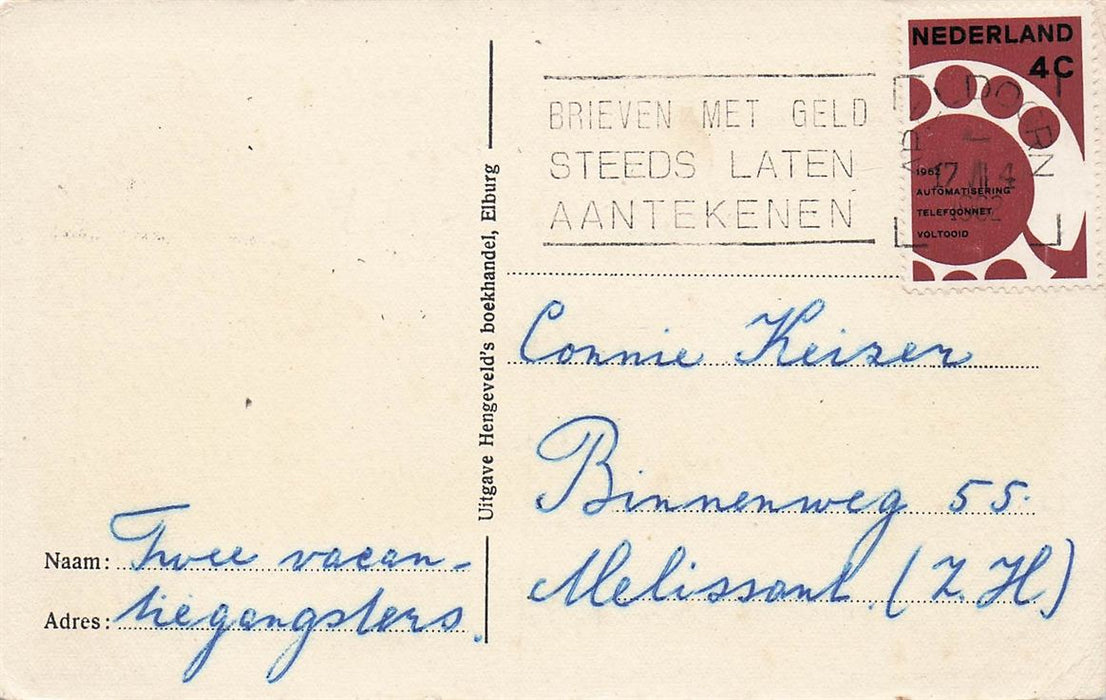 NEDERLAND
4C
1962
AUTOMATISERING
TELEFOONNET
VOLTOOID
BRIEVEN MET GELD
STEEDS LATEN
AANTEKENEN
APELDOORN
17
4
1962
Uitgave Hengeveld's boekhandel, Elburg
Connie Keizer
Binnenweg 55.
Melissant. (Z.H.)
Naam: Twee vacan-
Adres: tiegangsters.